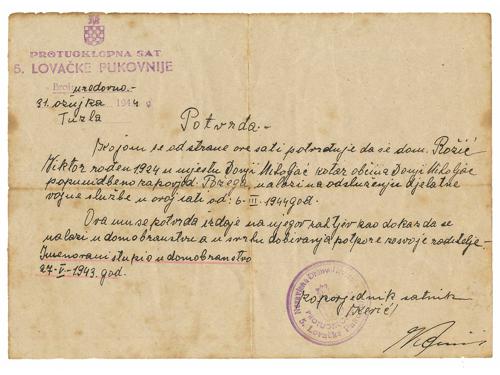 PROTUOKLOPNA SAT
5. LOVAČKE PUKOVNIJE
Broj uredovno.-
31. ožujka 1944 g
Tuzla
Potvrda.-
Kojom se od strane ove sati potvrđuje da je dom. Rožić
Viktor rođen 1924 u mjestu Donji Miholjac kotar obćina Donji Miholjac
popunidbeno zapovjed. Požega, nalazi na odsluženju djelatne
vojne službe u ovoj sati od: 6-III.-1944 god.
Ova mu se potvrda izdaje na njegov zahtjev kao dokaz da se
nalazi u domobranstvu a u svrhu dobivanja potpore za svoje roditelje-
Imenovani stupio u domobranstvo
27-V-1943. god.
zapovjednik satnik
5. Lovačke